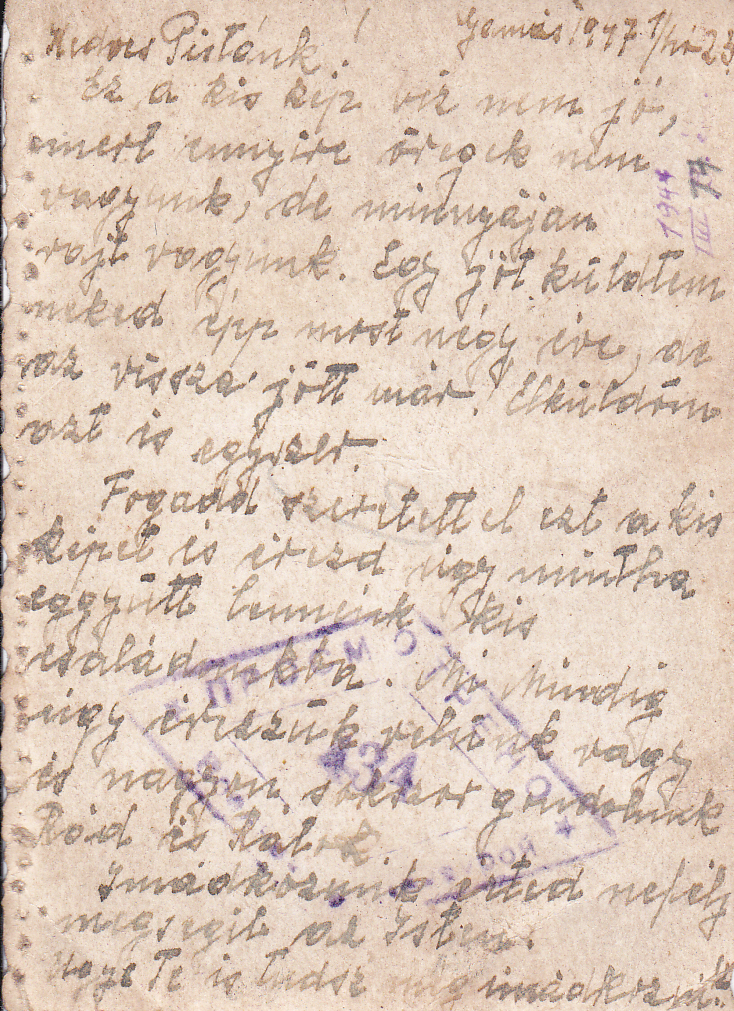 Kedves Pistánk! Gamás 1947 1/hó 23
Ez a kis kép biz nem jó,
mert ennyire öregek nem
vagyunk, de minnyájan
rajt vagyunk. Egy jót küldtem
neked épp most négy éve, de
az vissza jött már. Elküldöm
azt is egyszer.
Fogadd szeretettel ezt a kis
képet is érezd úgy mintha
eggyütt lennénk kis
családunkba. Mi Mindig
úgy érezzük velünk vagy
és nagyon sokszor gondolunk
Rád és Rátok
Imádkozunk érted ne félj
megsegít az Isten.
Ugye Te is tudsz még imádkozni.
1947
III 14
ПРОСМОТРЕНО
434